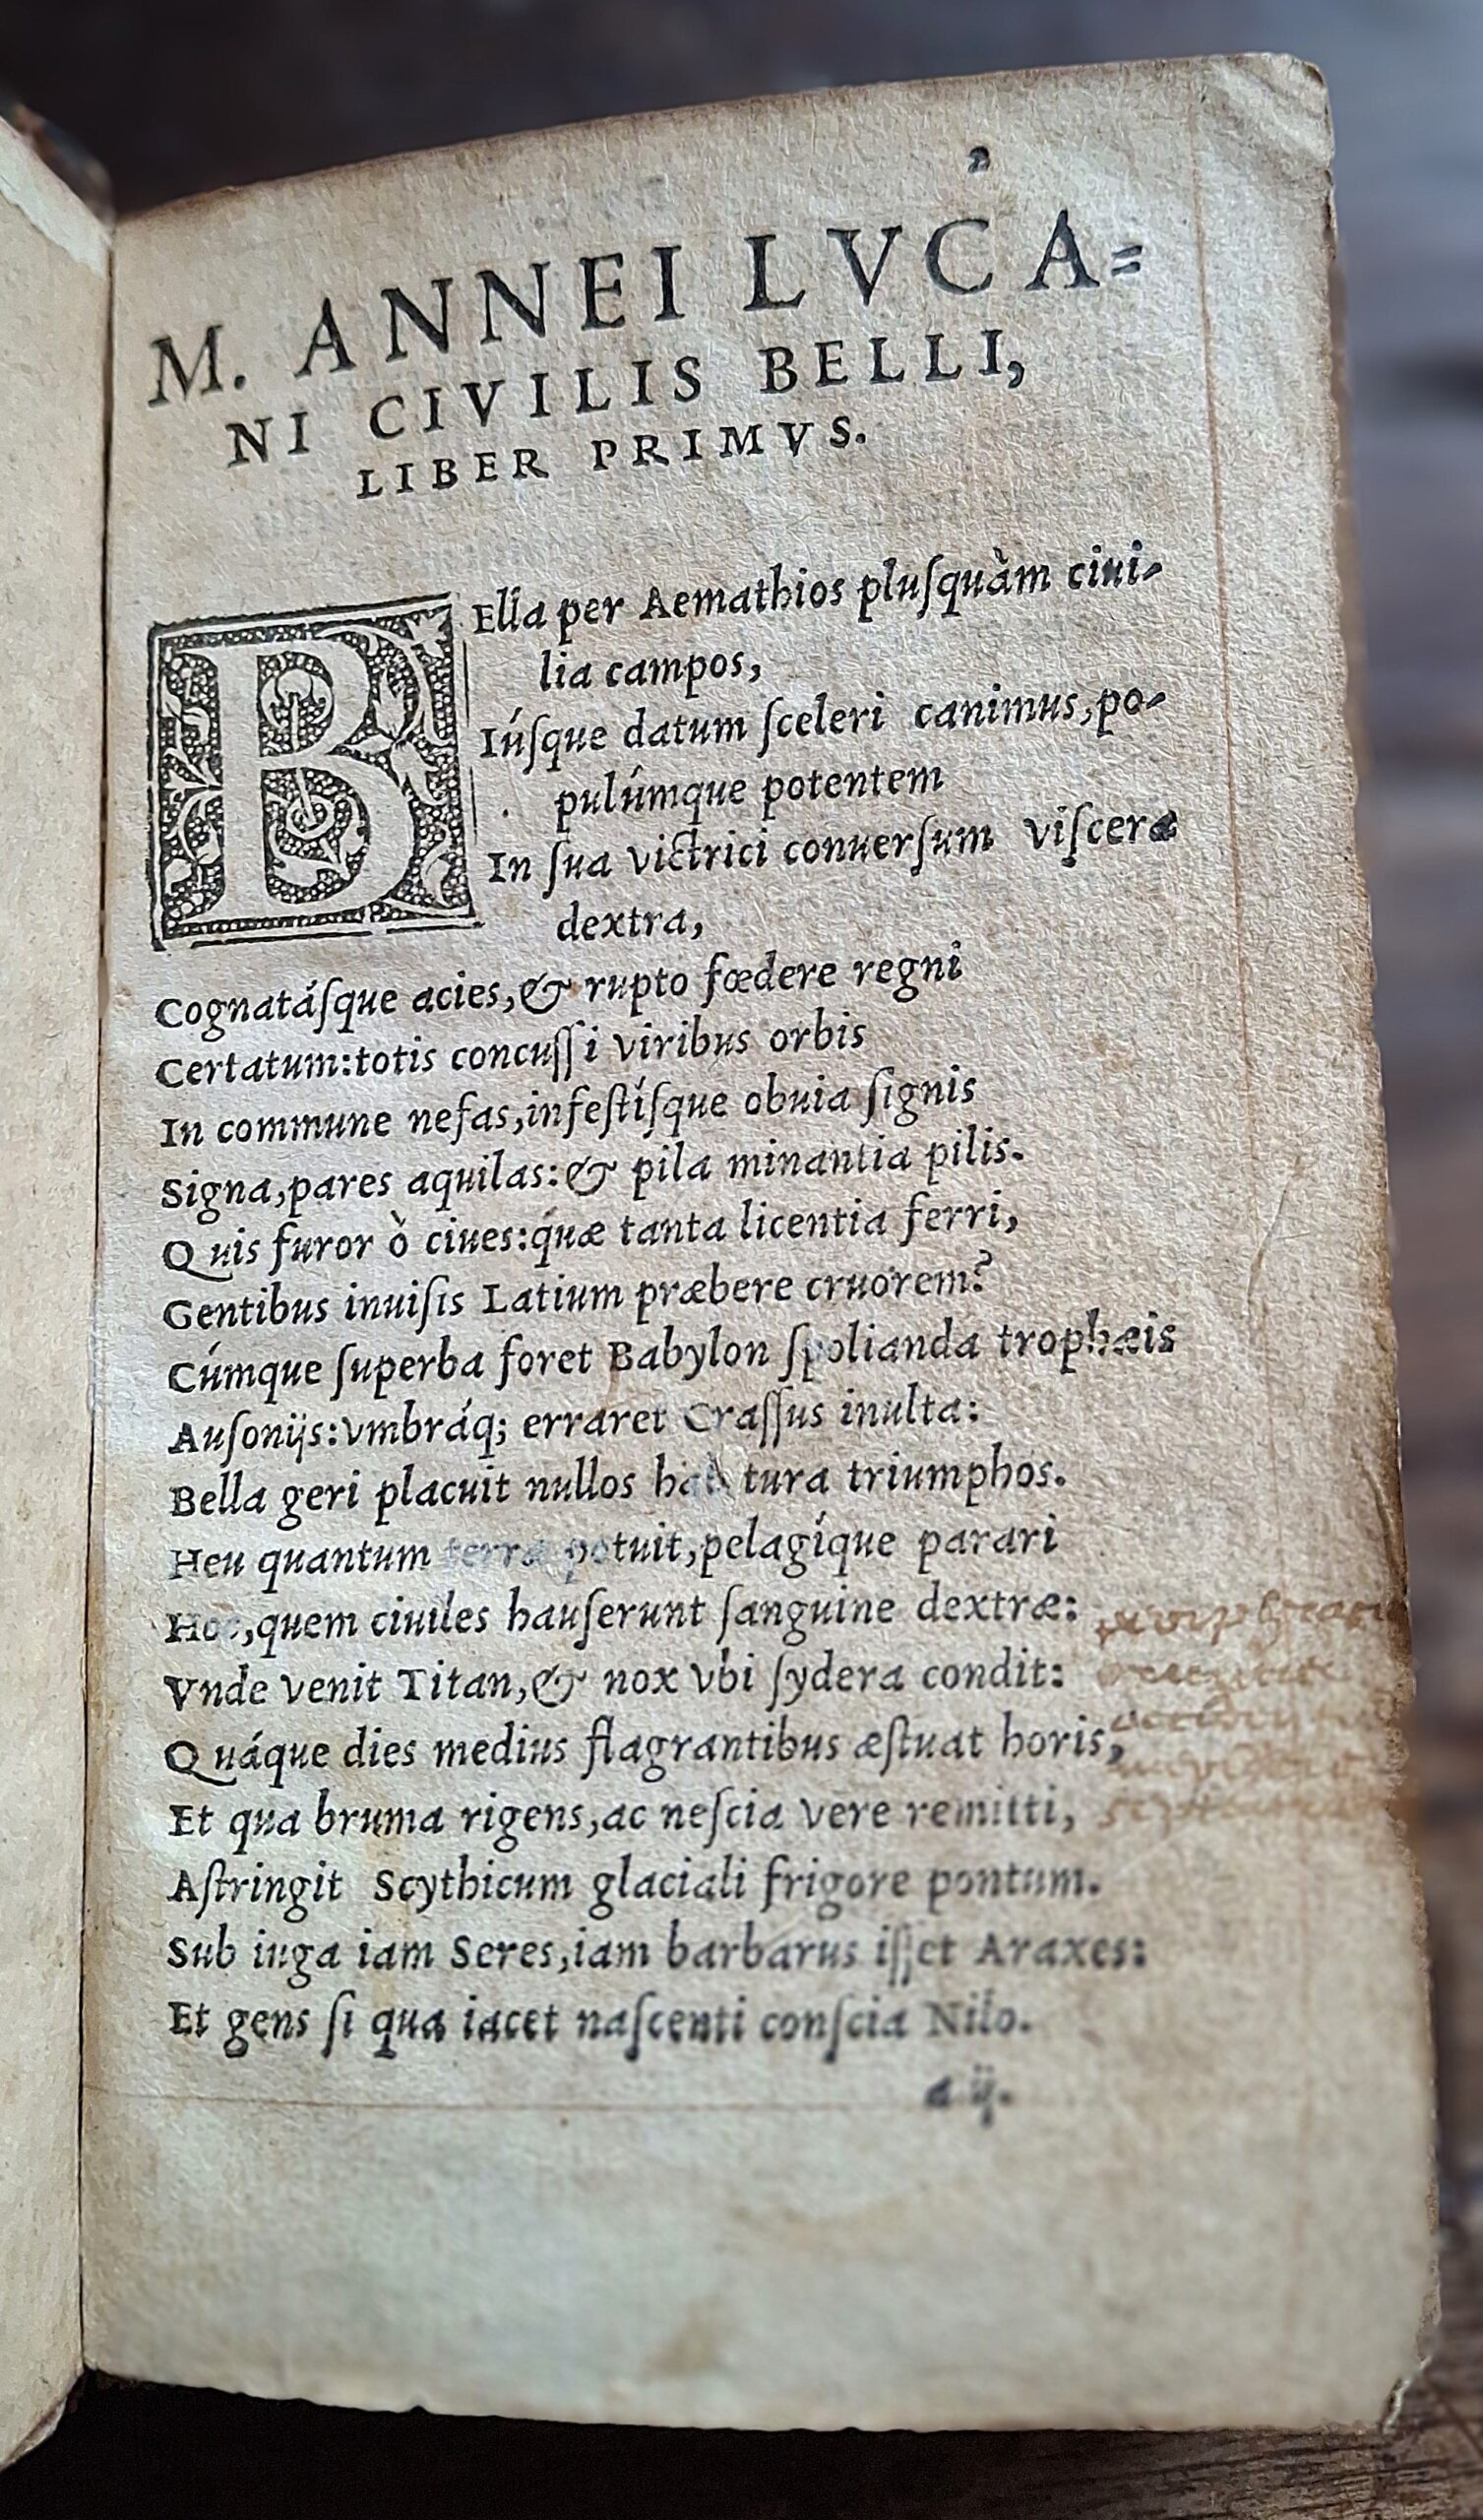 M. ANNEI LVCA=
NI CIVILIS BELLI,
LIBER PRIMVS.
BElla per Aemathios pluſquàm ciui-
lia campos,
Iúſque datum ſceleri canimus, po-
pulúmque potentem
In ſua victrici conuerſum viſcera
dextra,
Cognatáſque acies, & rupto fœdere regni
Certatum: totis concuſſi viribus orbis
In commune nefas, infeſtíſque obuia ſignis
Signa, pares aquilas: & pila minantia pilis.
Quis furor ò ciues: quæ tanta licentia ferri,
Gentibus inuiſis Latium præbere cruorem?
Cúmque ſuperba foret Babylon ſpolianda trophæis
Auſonijs: vmbráq; erraret Craſſus inulta:
Bella geri placuit nullos habitura triumphos.
Heu quantum terræ potuit, pelagíque parari
Hoc, quem ciuiles hauſerunt ſanguine dextræ:
Vnde venit Titan, & nox vbi ſydera condit:
Quáque dies medius flagrantibus æſtuat horis,
Et qua bruma rigens, ac neſcia vere remitti,
Aſtringit Scythicum glaciali frigore pontum.
Sub iuga iam Seres, iam barbarus iſſet Araxes:
Et gens ſi qua iacet naſcenti conſcia Nilo.
a ij.